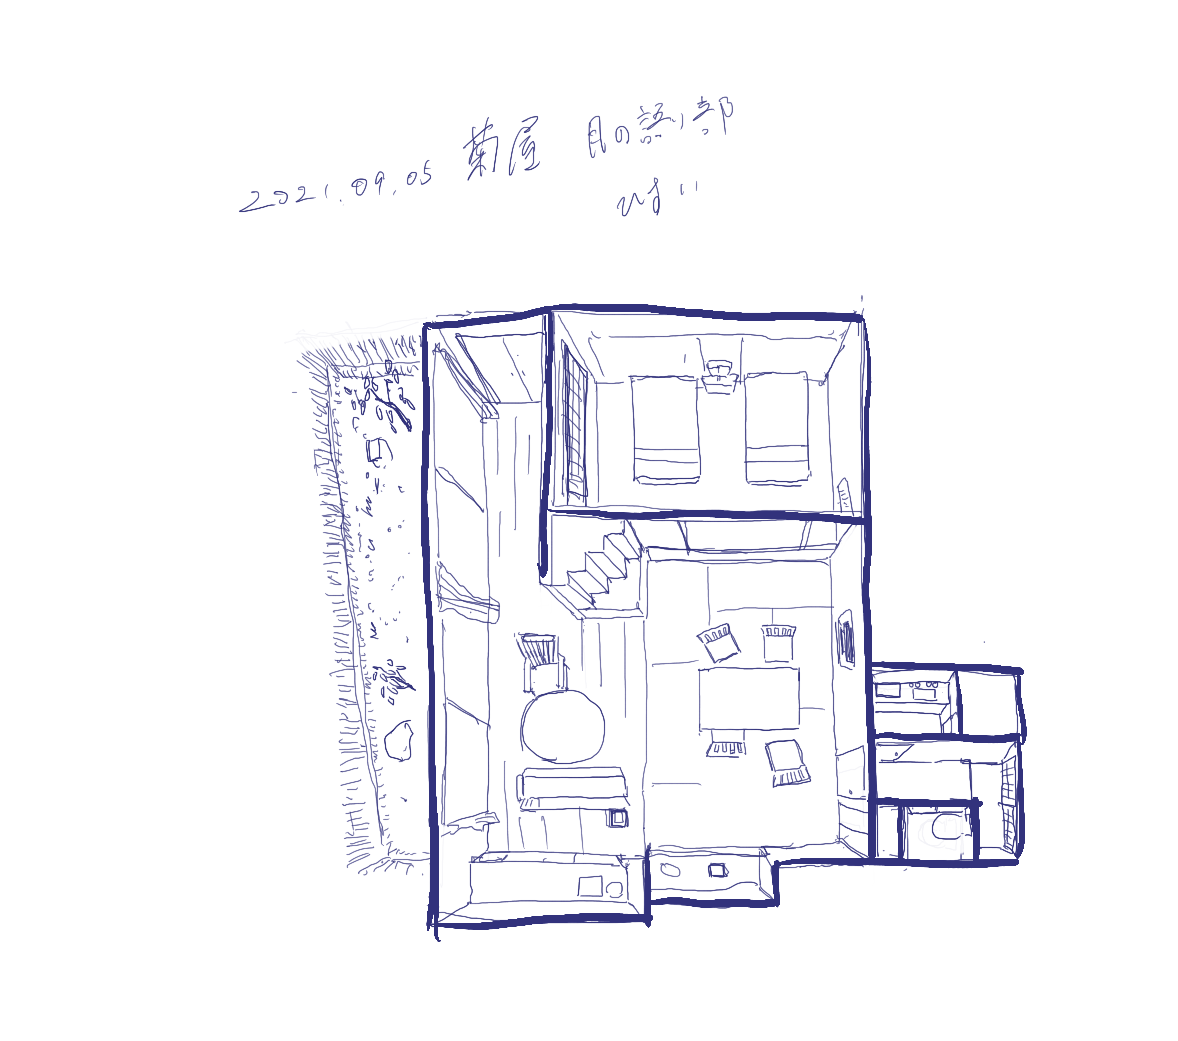 2021.09.05 菊屋 月の語り部
ひすい